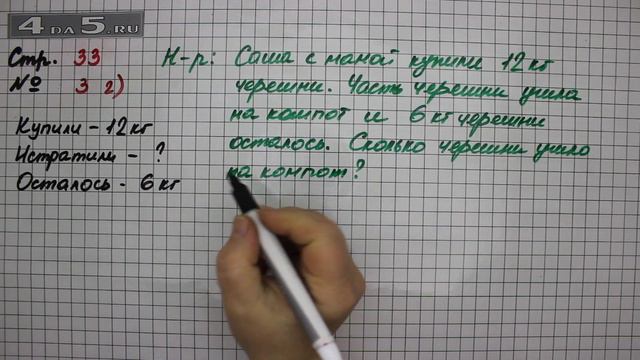 4DA5.RU
Стр. 33
№ 3 2)
Купили - 12 кг
Истратили - ?
Осталось - 6 кг
Н-р: Саша с мамой купили 12 кг
черешни. Часть черешни ушла
на компот и 6 кг черешни
осталось. Сколько черешни ушло
на компот?